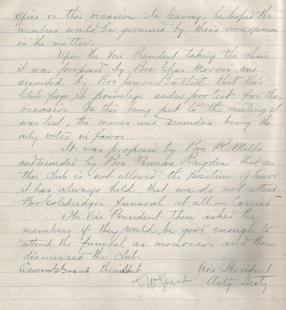 office on this occasion. In leaving, he hoped the
members would be governed by their own opinion
in the matter.
Upon the Vice President taking the chair
it was proposed by Bro Chas and
seconded by Bro James Bartlett that this
Club for its privileges under protest for this
occasion. On this being put to the meeting it
was lost, the mover and seconder being the
only votes in favor.
It was proposed by Bro R. Mills
and seconded by Bro Thomas that as
this Club is not allowed the position of honor
it has always held, that we do not attend
Bro funeral at all — Carried
The Vice President then asked the
members if they would be good enough to
attend the funeral as mourners and then
dismissed the Club.
President Vice President
Actg Secty.